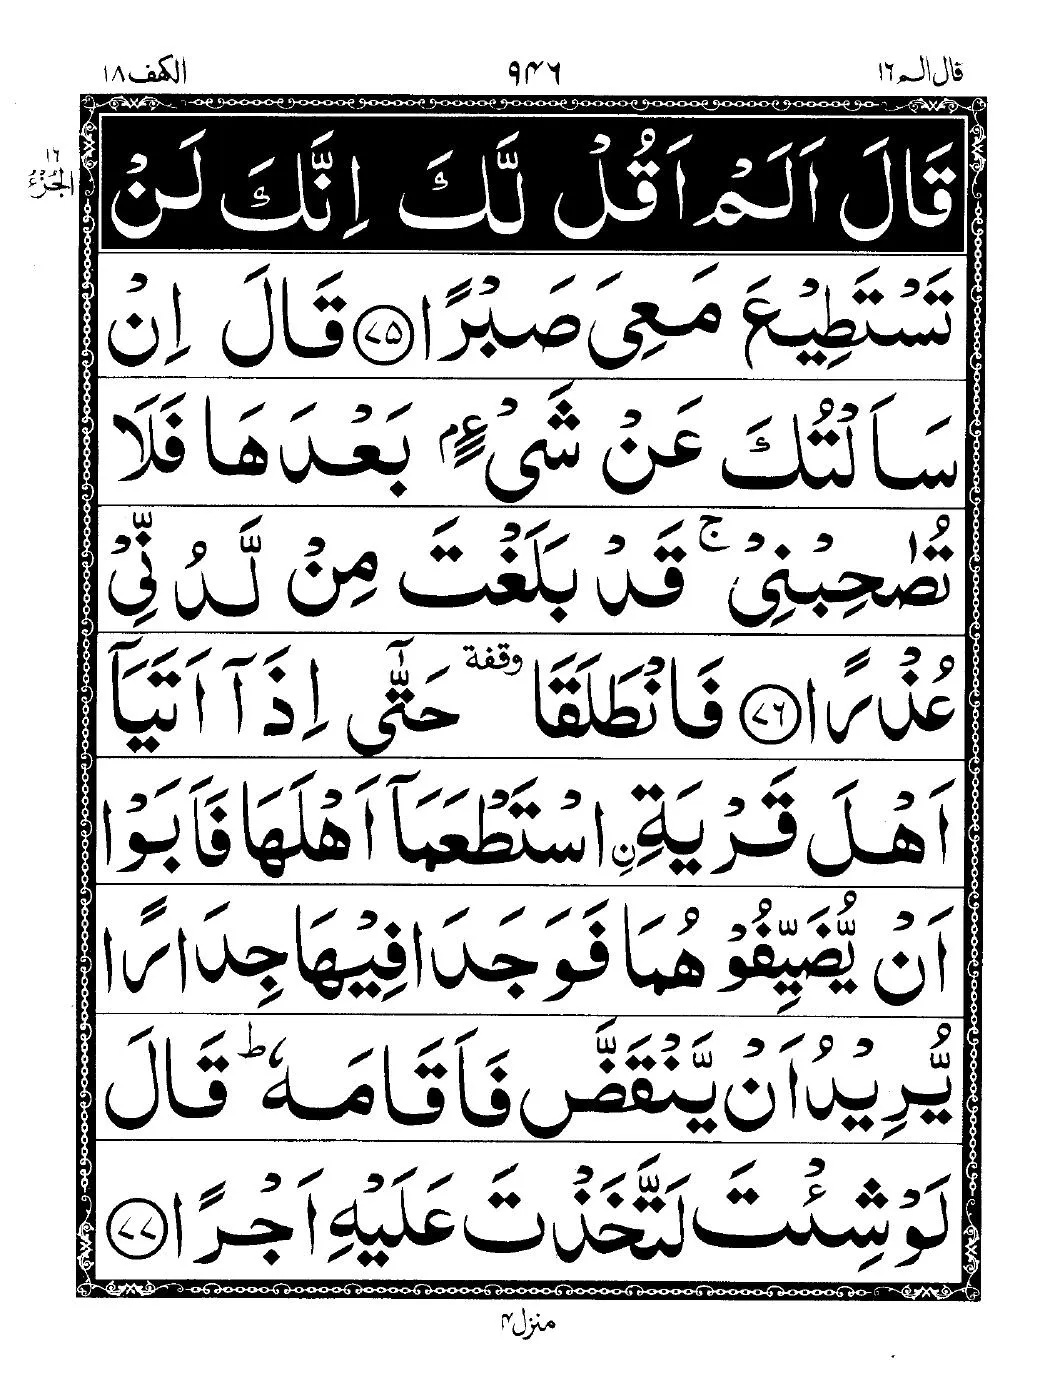 قال الم ١٦
٩٤٦
الكهف ١٨
الجزء ١٦
قَالَ اَلَمْ اَقُلْ لَّكَ اِنَّكَ لَنْ
تَسْتَطِيْعَ مَعِىَ صَبْرًا ﴿٧٥﴾ قَالَ اِنْ
سَاَلْتُكَ عَنْ شَىْءٍۭ بَعْدَهَا فَلَا
تُصٰحِبْنِىْ ۚ قَدْ بَلَغْتَ مِنْ لَّدُنِّىْ
عُذْرًا ﴿٧٦﴾ فَانْطَلَقَا وقفة حَتّٰٓى اِذَآ اَتَيَآ
اَهْلَ قَرْيَةِ ن اسْتَطْعَمَآ اَهْلَهَا فَاَبَوْا
اَنْ يُّضَيِّفُوْهُمَا فَوَجَدَا فِيْهَا جِدَارًا
يُّرِيْدُ اَنْ يَّنْقَضَّ فَاَقَامَهٗ ؕ قَالَ
لَوْ شِئْتَ لَتَّخَذْتَ عَلَيْهِ اَجْرًا ﴿٧٧﴾
منزل ٤